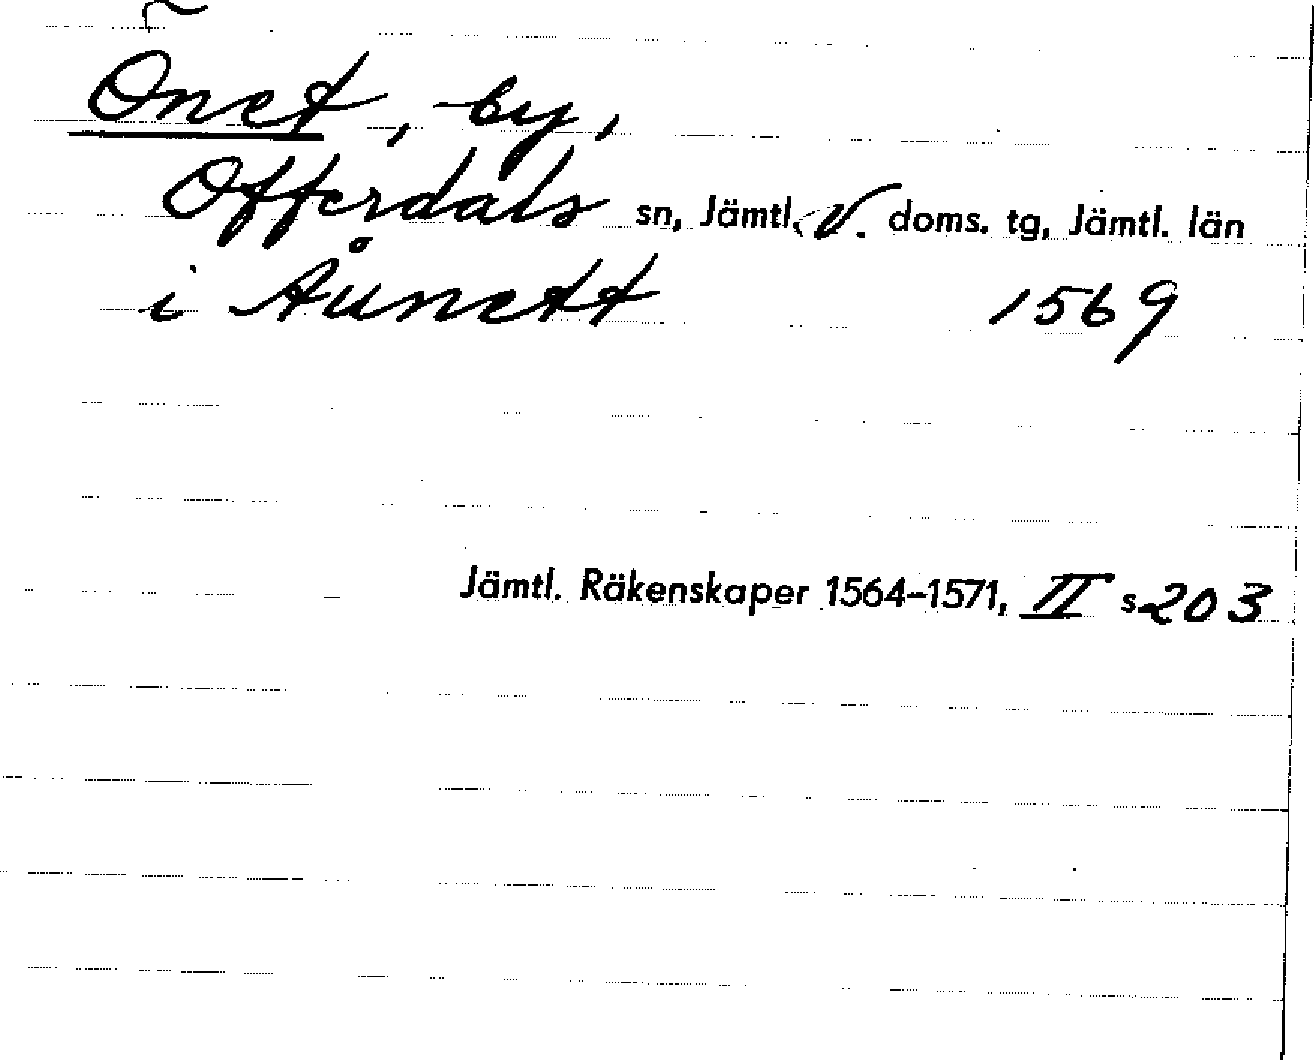 Önet, by,
Offerdals sn, Jämtl. v. doms. tg, Jämtl. län
i Åünett 1569
Jämtl. Räkenskaper 1564–1571, II s 203